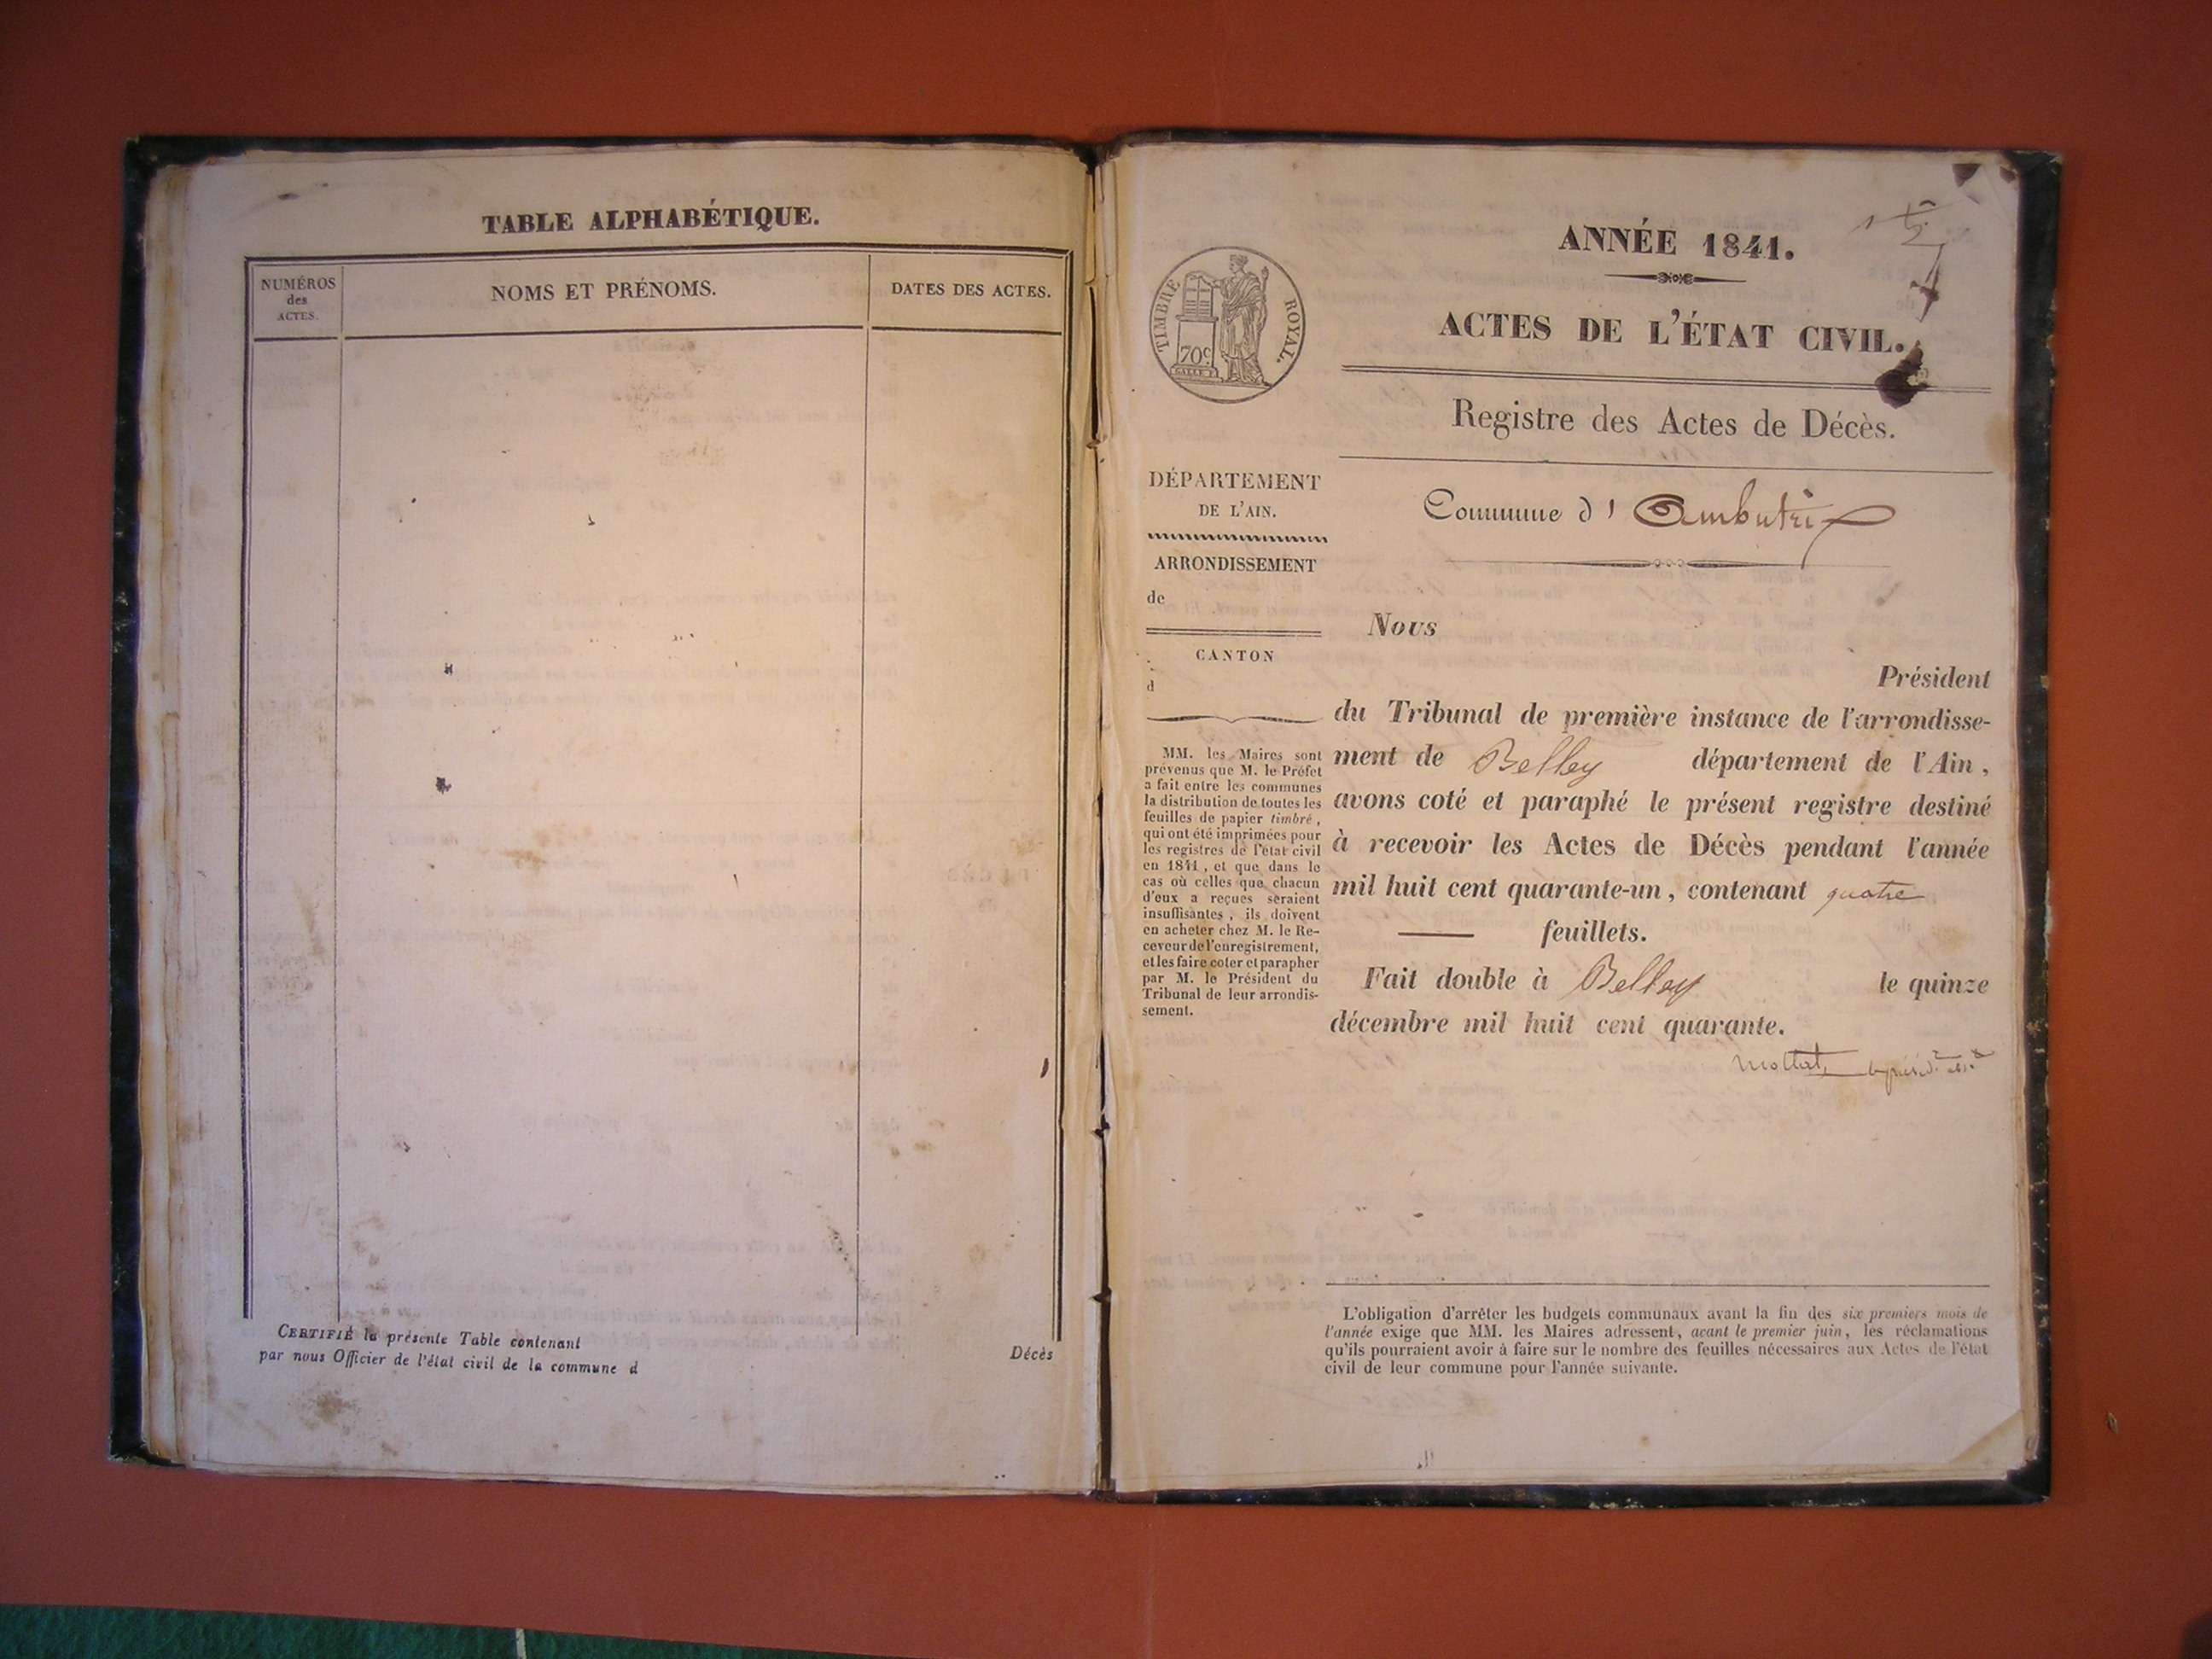 TABLE ALPHABÉTIQUE.
NUMÉROS
des
ACTES.
NOMS ET PRÉNOMS.
DATES DES ACTES.
CERTIFIÉ la présente Table contenant
Décès
par nous Officier de l'état civil de la commune d
ANNÉE 1841.
TIMBRE ROYAL.
70c.
ACTES DE L'ÉTAT CIVIL.
Registre des Actes de Décès.
DÉPARTEMENT
DE L'AIN.
ARRONDISSEMENT
de
CANTON
d
MM. les Maires sont
prévenus que M. le Préfet
a fait entre les communes
la distribution de toutes les
feuilles de papier timbré,
qui ont été imprimées pour
les registres de l'état civil
en 1841, et que dans le
cas où celles que chacun
d'eux a reçues seraient
insuffisantes, ils doivent
en acheter chez M. le Re-
ceveur de l'enregistrement,
et les faire coter et parapher
par M. le Président du
Tribunal de leur arrondis-
sement.
Commune d' Ambutrix
Nous
Président
du Tribunal de première instance de l'arrondisse-
ment de Belley département de l'Ain,
avons coté et paraphé le présent registre destiné
à recevoir les Actes de Décès pendant l'année
mil huit cent quarante-un, contenant quatre
feuillets.
Fait double à Belley le quinze
décembre mil huit cent quarante.
L'obligation d'arrêter les budgets communaux avant la fin des six premiers mois de
l'année exige que MM. les Maires adressent, avant le premier juin, les réclamations
qu'ils pourraient avoir à faire sur le nombre des feuilles nécessaires aux Actes de l'état
civil de leur commune pour l'année suivante.